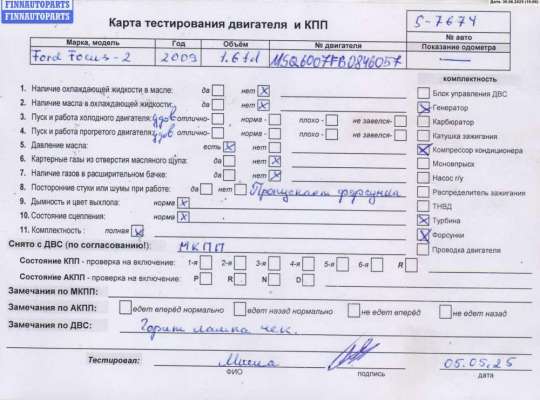 FINNAUTOPARTS
FINNAUTOPARTS
Карта тестирования двигателя и КПП
S-7674
№ авто
Марка, модель Год Объём № двигателя Показание одометра
Ford Focus-2 2009 1.6td MSQ6007FB0846057 —
комплектность
1. Наличие охлаждающей жидкости в масле: да нет X
Блок управления ДВС
2. Наличие масла в охлаждающей жидкости: да нет X
X Генератор
3. Пуск и работа холодного двигателя: удов отлично- норма - плохо - не завелся-
Карбюратор
4. Пуск и работа прогретого двигателя: удов отлично- норма - плохо - не завелся-
Катушка зажигания
5. Давление масла: есть X нет
X Компрессор кондиционера
6. Картерные газы из отверстия масляного щупа: да нет X
Моновпрыск
7. Наличие газов в расширительном бачке: да нет X
Насос г/у
8. Посторонние стуки или шумы при работе: да нет Пропускает форсунка
Распределитель зажигания
9. Дымность и цвет выхлопа: норма X
ТНВД
10. Состояние сцепления: норма X
X Турбина
11. Комплектность : полная X
X Форсунки
Снято с ДВС (по согласованию!): МКПП
Проводка двигателя
Состояние КПП - проверка на включение: 1-я 2-я 3-я 4-я 5-я 6-я R
Состояние АКПП - проверка на включение: P R N D
Замечания по МКПП:
Замечания по АКПП: едет вперёд нормально едет назад нормально не едет вперёд не едет назад
Замечания по ДВС: Горит лампа чек.
Тестировал: Миша 05.05.25
ФИО подпись дата